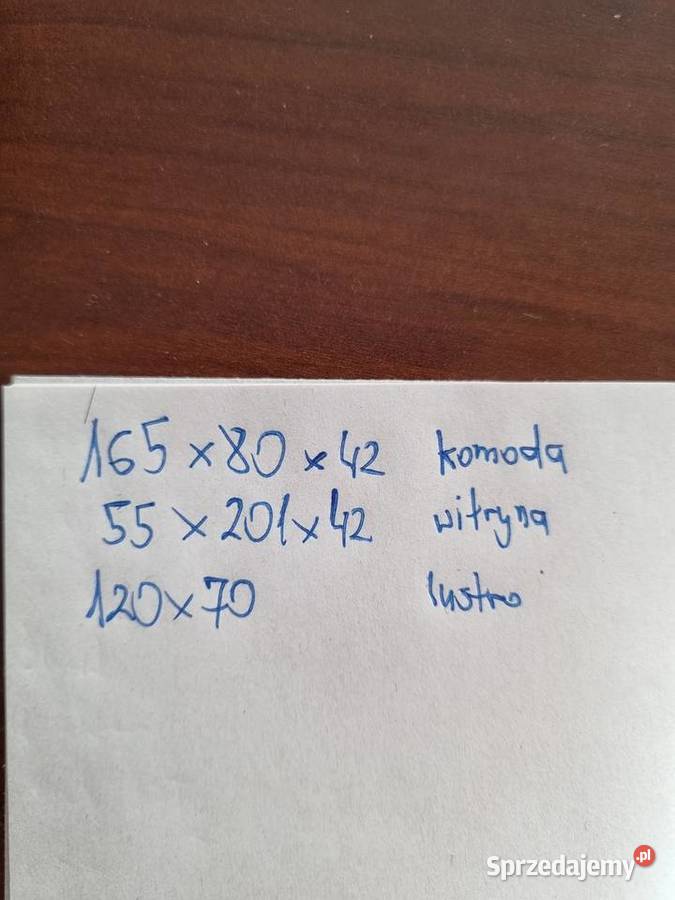 165 x 80 x 42 komoda
55 x 201 x 42 witryna
120 x 70 lustro
Sprzedajemy.pl